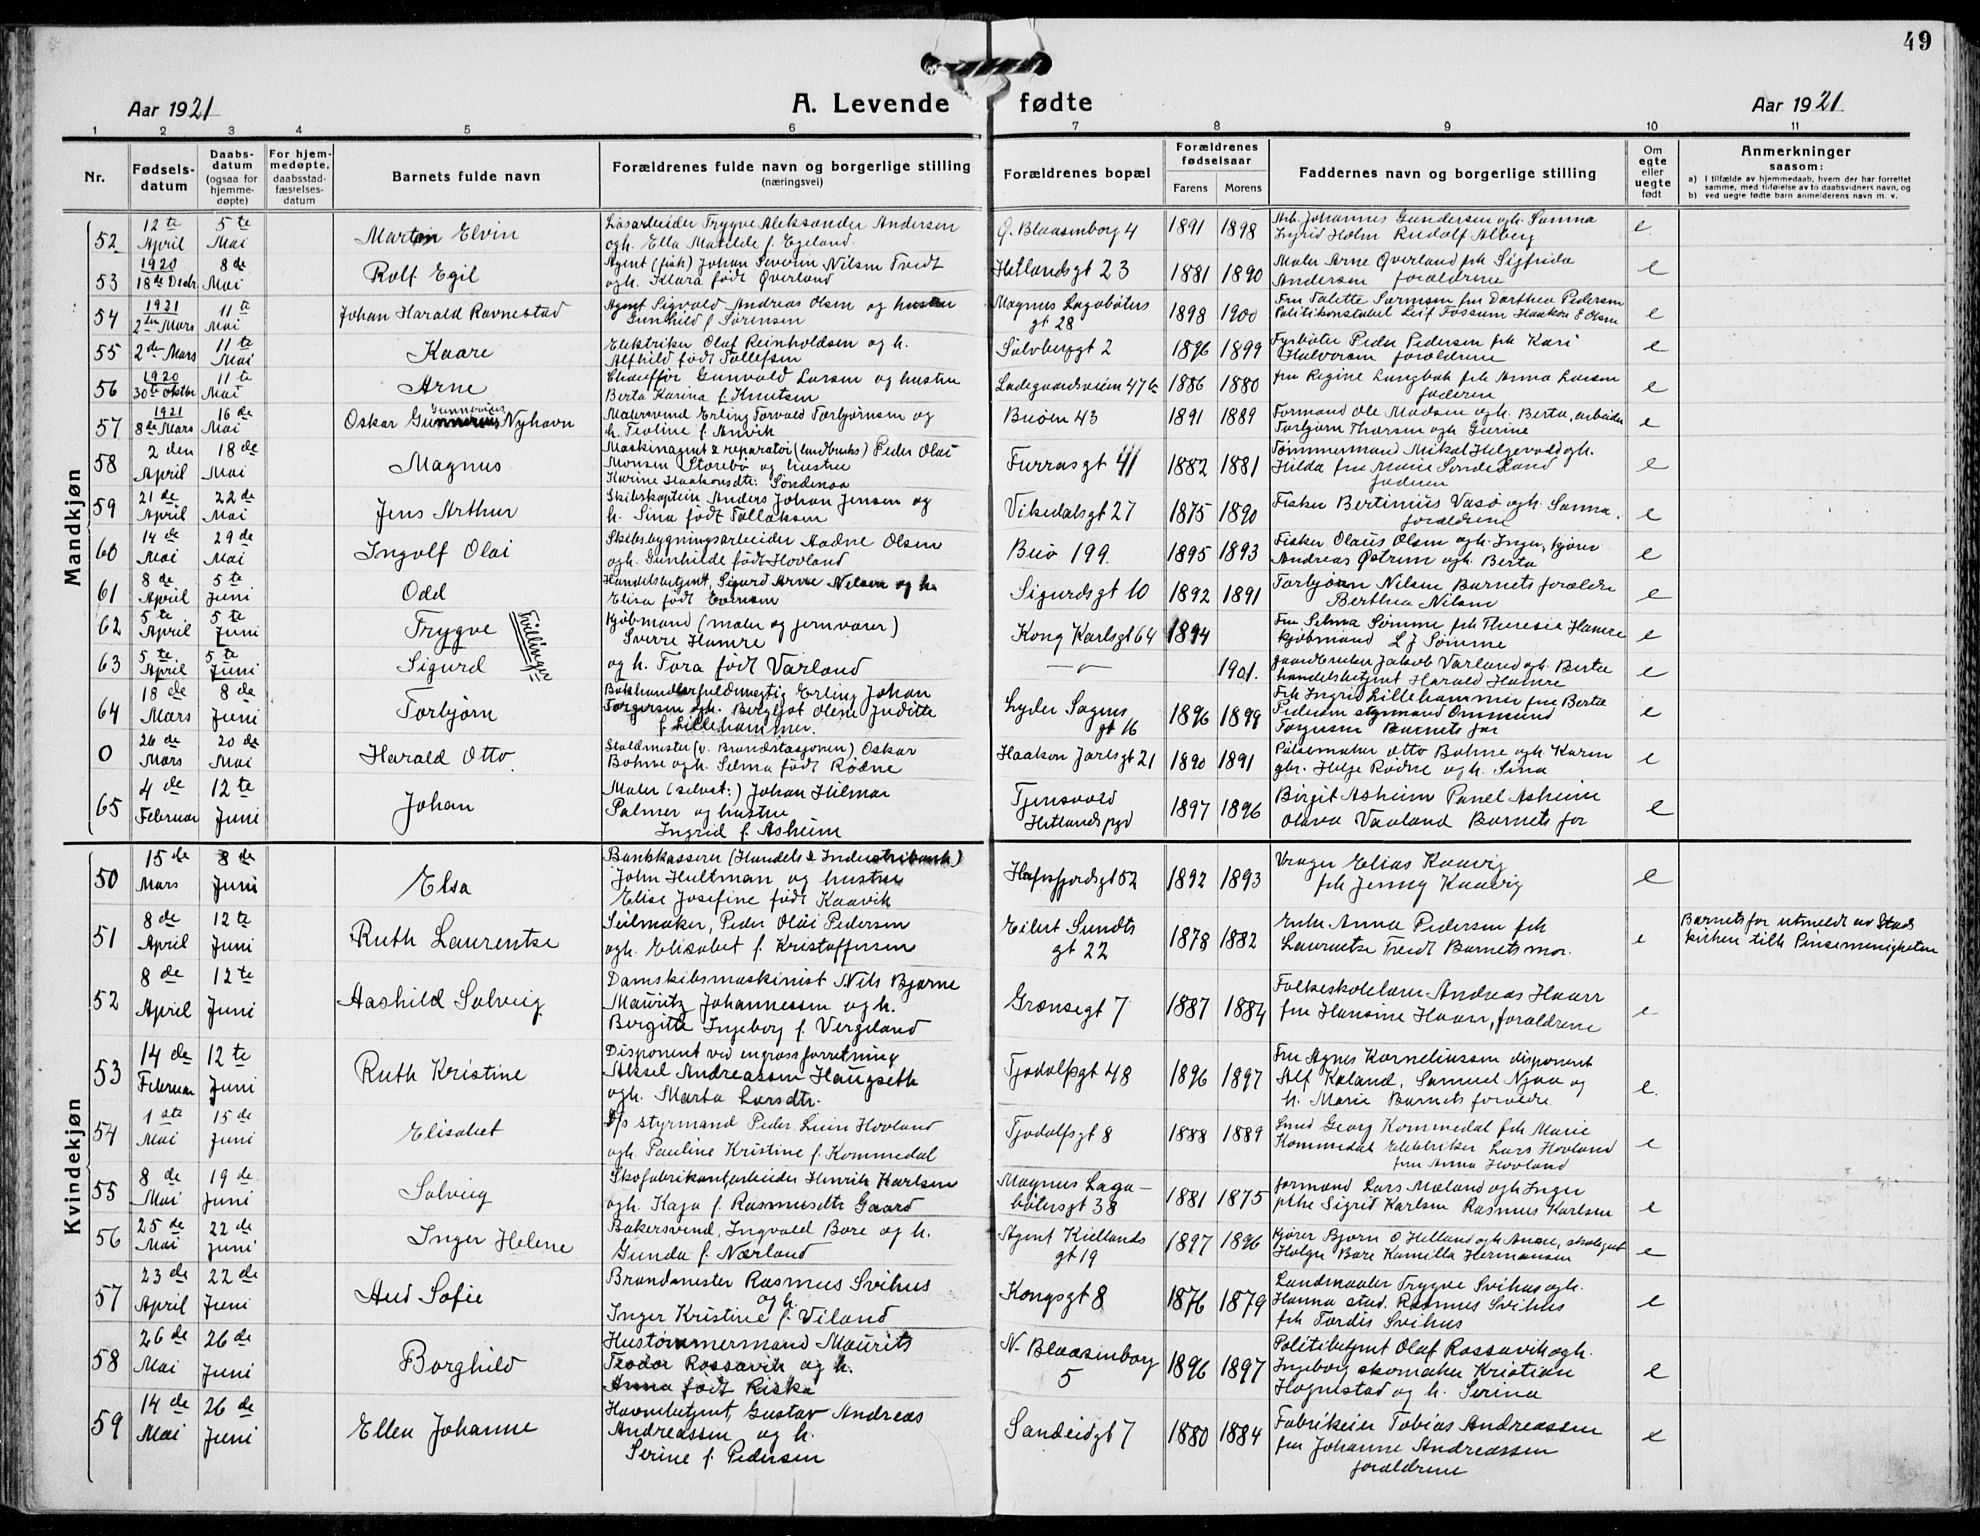 49
Aar 1921
A. Levende fødte
Aar 1921
1 2 3 4 5 6 7 8 9 10 11
Nr.
Fødselsdatum
Daabsdatum (ogsaa for hjemmedøpte)
For hjemmedøpte, daabsstadfæstelsesdatum
Barnets fulde navn
Forældrenes fulde navn og borgerlige stilling
(næringsvei)
Forældrenes bopæl
Forældrenes fødselsaar
Farens Morens
Faddernes navn og borgerlige stilling
Om egte eller uegte født
Anmerkninger
saasom:
a) I tilfælde av hjemmedaab, hvem der har forrettet samme, med tilføielse av to daabsvidners navn, og
b) ved uegte fødte barn anmelderens navn m. v.
Mandkjøn
52 12te April 5te Mai Marton Elvin
Løsarbeider Trygve Aleksander Andersen
ogh. Ella Matilde f. Egeland.
Ø. Blaasenborg 4 1891 1898
Arb. Johannes Gundersen ogh. Sanna
Ingrid Holm Rudolf Alberg
e
53 1920 18de Decbr. 8de Mai Rolf Egil
Agent (fisk) Johan Severin Nilsen Tvedt
ogh. Klara født Øverland
Hetlandsgt 23 1881 1890
Maler Arne Øverland frk Sigfrida
Andersen forældrene
e
54 1921 2den Mars 11te Mai Johan Harald Ravnestad
Agent Sigvald Andreas Olsen og hustru
Gunhild f. Sørensen
Magnus Lagabøters
gt 28
1898 1900
Fru Talette Sørensen fru Dorthea Pedersen
Politikonstabel Leif Fossum Haakon E Olsen
e
55 2den Mars 11te Mai Kaare
Elektriker Olaf Reinholdsen og h.
Alfhild født Tollefsen
Sølvberggt 2 1896 1899
Fyrbøter Peder Pedersen frk Kari
Halvorsen forældrene
e
56 1920 30te oktbr 11te Mai Arne
Chauffør Gunvald Larsen og hustru
Berta Karina f. Knutsen
Ladegaardsveien 47b 1886 1880
fru Regine Langbak frk Anna Larsen
faderen
e
57 1921 8de Mars 16de Mai Oskar Gunnerius Nyhavn
Malersvend Erling Torvald Torbjørnsen og
h. Teoline f. Anvik
Buøen 43 1891 1889
Formand Ole Madsen ogh. Berta, arbeider
Torbjørn Thorsen ogh Gurine
e
58 2den April 18de Mai Magnus
Maskinagent & reparatør (landbruks) Peder Olai
Monsen Storebø og hustru
Karine Haakonsdtr. Søndenaa
Furrasgt 41 1882 1881
Tømmermand Mikal Helgevold ogh.
Hilda fru Marie Søndeland
faderen
e
59 21de April 22de Mai Jens Arthur
Skibskaptein Anders Johan Jensen og
h. Sina født Tollaksen
Vikedalsgt 27 1875 1890
Fisker Bertinius Vasø ogh. Sanna,
forældrene
e
60 14de Mai 29de Mai Ingolf Olai
Skibsbygningsarbeider Aadne Olsen
ogh. Gunhilde født Hovland
Buø 199. 1895 1893
Fisker Olaus Olsen ogh. Inger, kjører
Andreas Østrem ogh. Berta
e
61 8de April 5te Juni Odd
Handelsbetjent, Sigurd Arne Nilsen og h.
Elisa født Evensen
Sigurdsgt 10 1892 1891
Torbjørn Nilsen Barnets forældre
Berthea Nilsen
e
62 5te April 5te Juni Trygve
Tvillinger
Kjøbmand (maler og jernvarer)
Sverre Hamre
Kong Karlsgt 64 1894
Fru Selma Sømme frk Theresie Hamre
kjøbmand L J Sømme
e
63 5te April 5te Juni Sigurd
og h. Tora født Varland
— 〃 — 1901.
gaardbruker Jakob Varland ogh. Berta
handelsbetjent Harald Hamre
e
64 18de Mars 8de Juni Torbjørn
Bokhandlerfuldmegtig Erling Johan
Torgersen ogh. Bergljot Olene Juditte
f. Lillehammer.
Lyder Sagens
gt 16
1896 1899
Frk Ingrid Lillehammer fru Berta
Pedersen styrmand Ommund
Torgersen Barnets far
e
0 26de Mars 20de Mai Harald Otto
Staldmester (v. Brandstasjonen) Oskar
Bohne ogh. Selma født Rødne
Haakon Jarlsgt 21 1890 1891
Pølsemaker Otto Bohne ogh. Karen
gbr. Helge Rødne og h. Sina
e
65 4de Februar 12te Juni Johan
Maler (selvst:) Johan Hilmar
Palmer og hustru
Ingrid f. Asheim
Tjensvold
Hetlands pgd
1897 1896
Birgit Asheim Panel Asheim
Olava Vaaland Barnets far
e
Kvindekjøn
50 15de Mars 8de Juni Elsa
Bankkasserer (Handels & Industribank)
John Hultman og hustru
Elise Josefine født Kaavik
Hafrsfjordsgt 52 1892 1893
Vrager Elias Kaavig
frk Jenny Kaavig
e
51 8de April 12te Juni Ruth Laurentse
Seilmaker, Peder Olai Pedersen
ogh. Elisabet f. Kristoffersen
Eilert Sundts
gt 22
1878 1882
Enke Anna Pedersen frk
Laurentse Tveidt Barnets mor.
e
Barnets far utmeldt av Stats
kirken tilh. Pinsemenigheten
52 8de April 12te Juni Aashild Solveig
Damskibsmaskinist Nils Bjarne
Mauritz Johannessen og h.
Birgitte Ingeborg f. Vergeland
Grænsegt 7 1887 1884
Folkeskolelærer Andreas Haarr
fru Hansine Haarr, forældrene
e
53 14de Februar 12te Juni Ruth Kristine
Disponent ved engrosforretning
Aksel Andreassen Haugseth
ogh. Marta Larsdtr.
Tjodolfsgt 48 1896 1897
Fru Agnes Korneliussen disponent
Alf Kaland, Samuel Njaa og
h. Marie Barnets forældre
e.
54 1ste Mai 15de Juni Elisabet
D/s styrmand Peder Luin Hovland
ogh. Pauline Kristine f. Kommedal
Tjodolfsgt 8 1888 1889
Smed Georg Kommedal frk Marie
Kommedal Elektriker Lars Hovland
fru Anna Hovland
e
55 8de Mai 19de Juni Solveig
Skofabrikantarbeider Henrik Karlsen
ogh. Kaja f. Rasmusdtr Gaard
Magnus Laga-
bøtersgt 38
1881 1875
formand Lars Mæland ogh Inger
pike Sigrid Karlsen Rasmus Karlsen
e
56 25de Mai 22de Juni Inger Helene
Bakersvend, Ingvald Bore og h.
Gunda f. Nærland
Agent Kiellands
gt 19
1897 1896
Kjører Bjørn O Helland ogh Anne, skolegut
Helge Bore Kamilla Hermansen
e
57 23de April 22de Juni Aud Sofie
Brandmester Rasmus Svihus
og h.
Inger Kristine f. Viland
Kongsgt 8 1876 1879
Landmaaler Trygve Svihus ogh.
Hanna stud. Rasmus Svihus
frk Tordis Svihus
e
58 26de Mai 26de Juni Borghild
Hustømmermand Maurits
Teodor Rossavik og h.
Anna født Riska
N. Blaasenborg
5
1896 1897
Politibetjent Olaf Rossavik ogh.
Ingeborg skomaker Kristian
Hognestad og h. Serina
e
59 14de Mai 26de Juni Ellen Johanne
Havnebetjent, Gustav Andreas
Andreassen og h.
Serine f. Pedersen
Sandeidgt 7 1880 1884
Fabrikeier Tobias Andreassen
fru Johanne Andreassen
forældrene
e